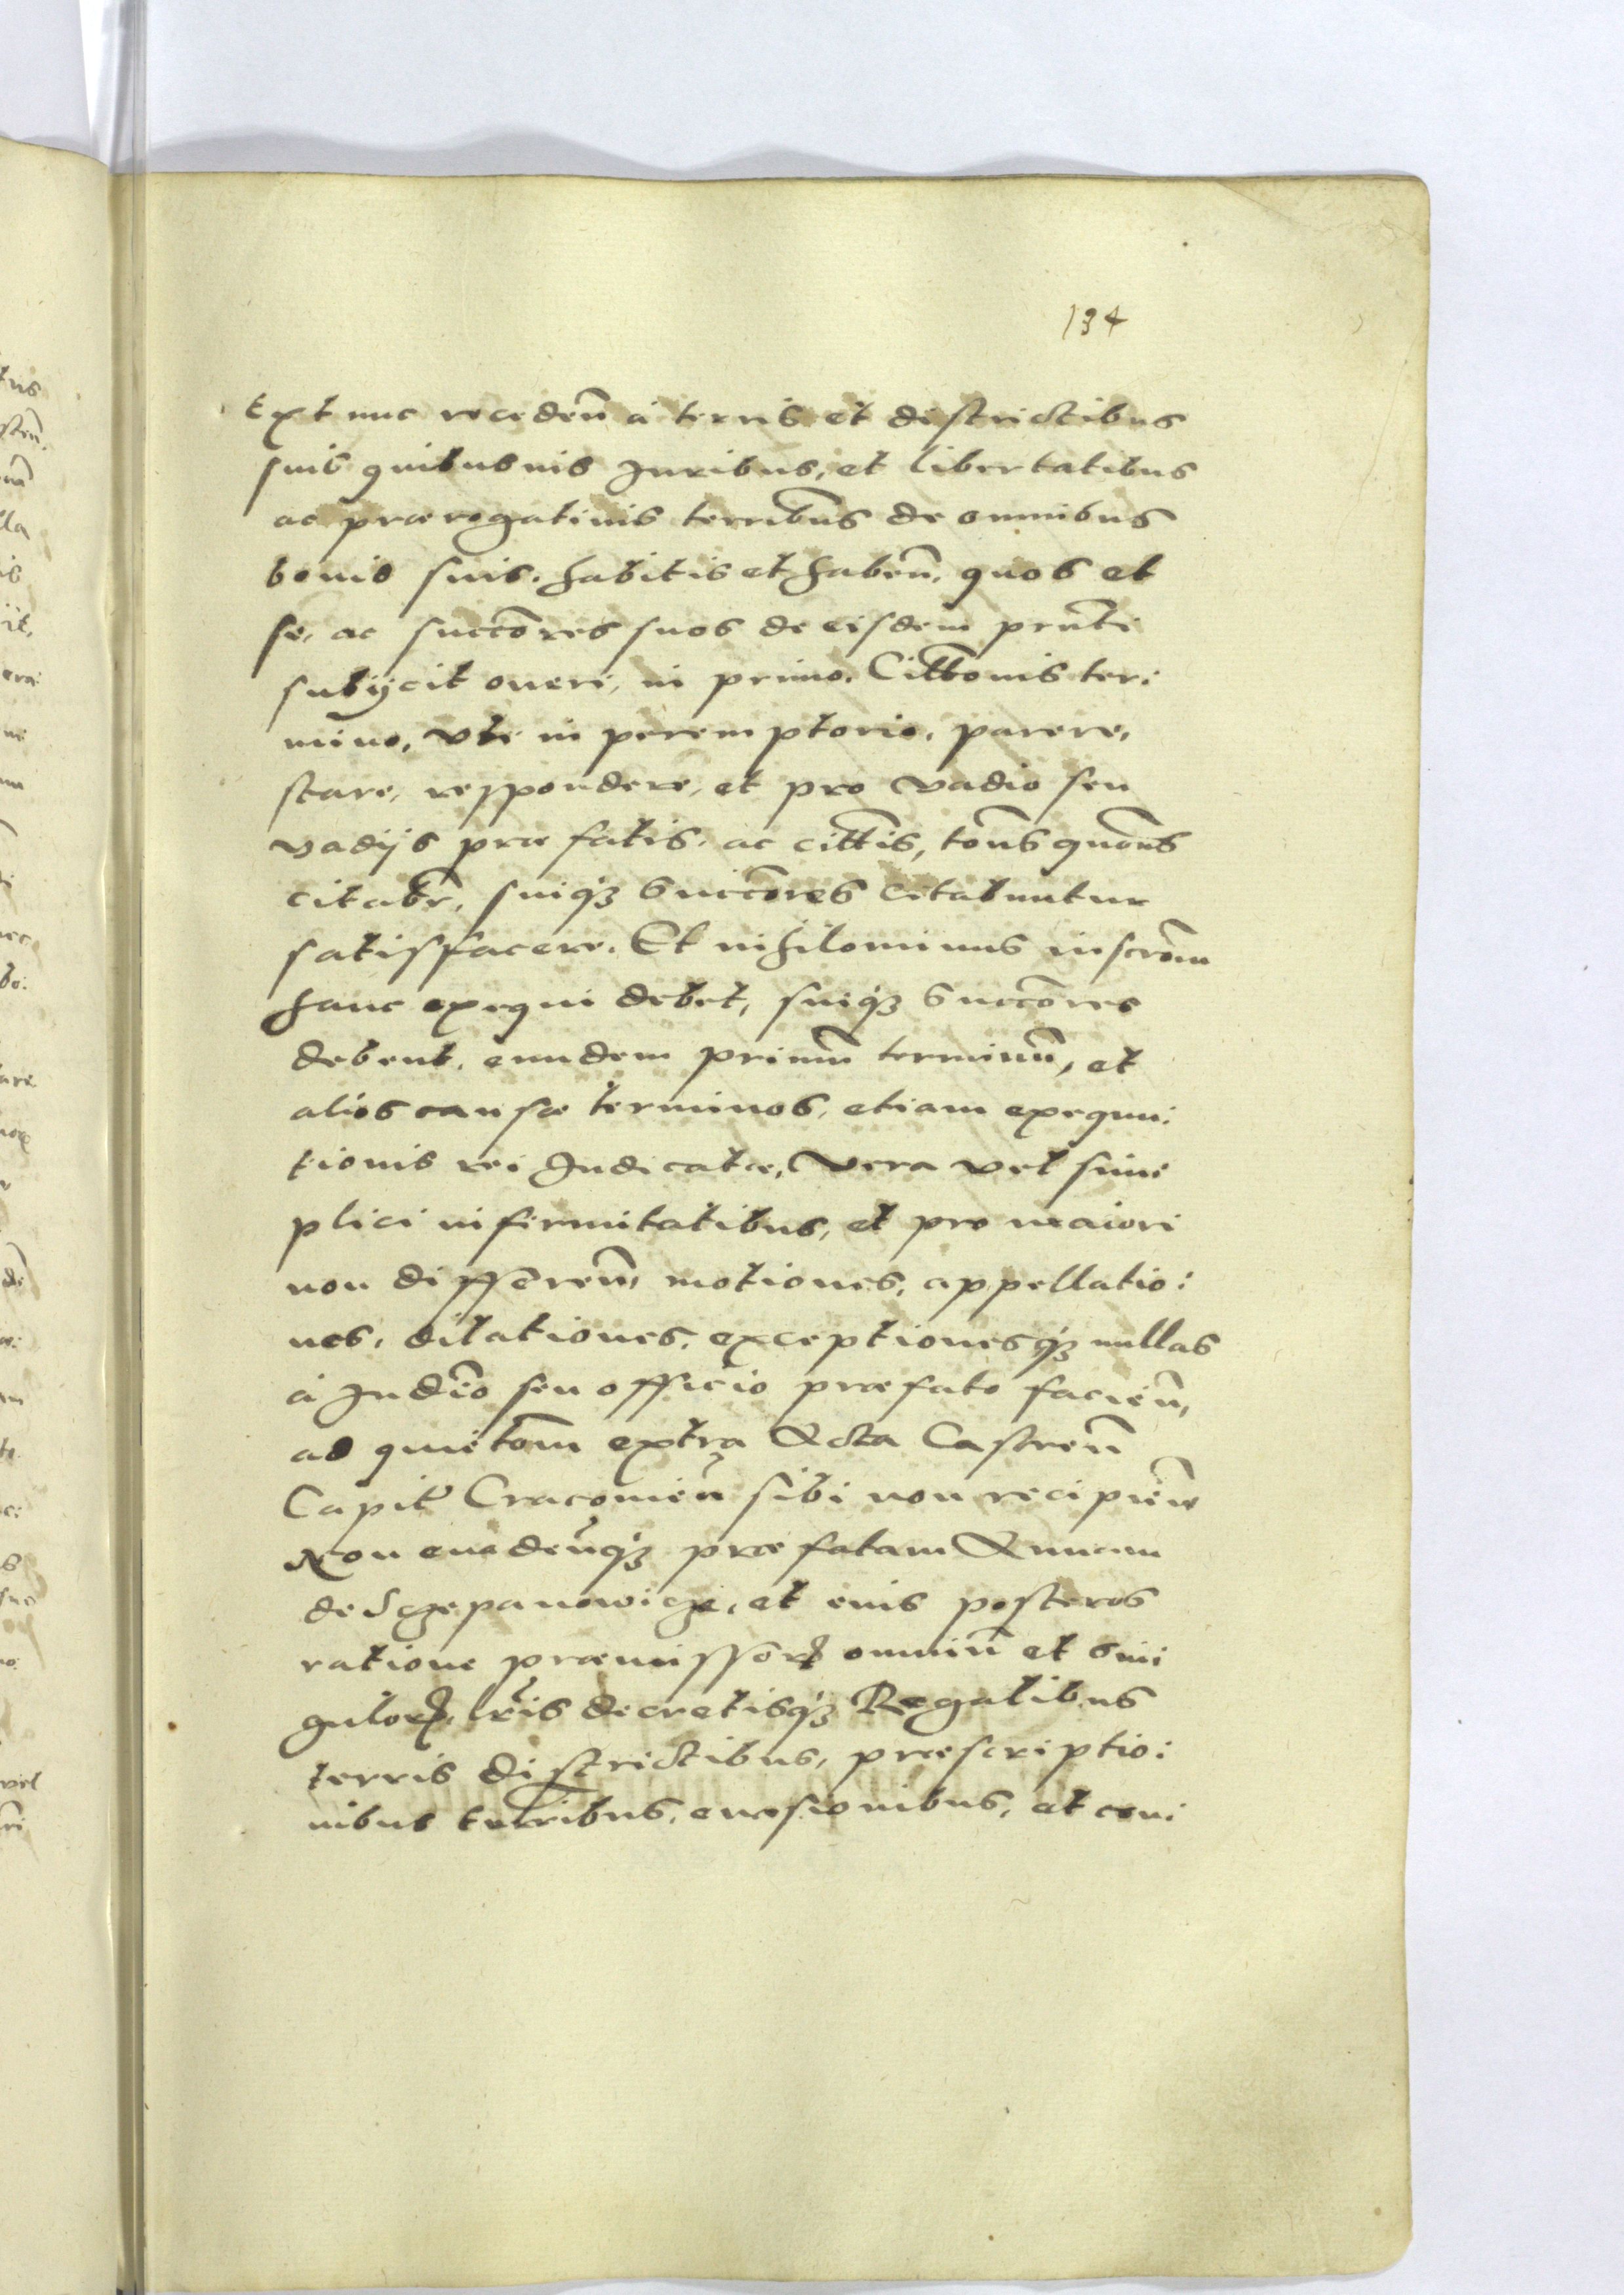 134
Extunc receden̄ à terris et districtibus
suis quibusuis Juribus, et libertatibus
ac prærogatiuis terribūs de omnibus
bonis suis, habitis et haben̄, quos et
se, ac succōres suos de eisdem prn̄ti
subijcit oneri, in primo. Citt̄onis ter:
mino, Vti in peremptorio, parere,
stare, respondere, et pro vadio seu
vadijs præfatis, ac citt̄is, tōns quōns
citabr̄, suiqꝫ succōres citabuntur
satisfacere. Et nihilominus inscrōm
hanc exequi debet, suiqꝫ succōres
debent, eundem primū terminū, et
alios causæ terminos, etiam exequu:
tionis rei Judicatæ, vera vel sim:
plici infirmitatibus, et pro maiori
non differen̄, motiones, appellatio:
nes, dilationes, exceptionesqꝫ nullas
à Judīo seu officio præfato facien̄,
ad quiet̄om extra Acta Castren̄
Capit̄ Cracouien̄ sibi non recipien̄
Non euaden̄qꝫ præfatam Annam
de Sczepanowicze, et eius posteros
ratione præmissorꝝ omniū et sin:
gulorꝝ, lr̄is decretisqꝫ Regalibus
terris districtibus, præscriptio:
nibus terribus, euasionibus, et con: